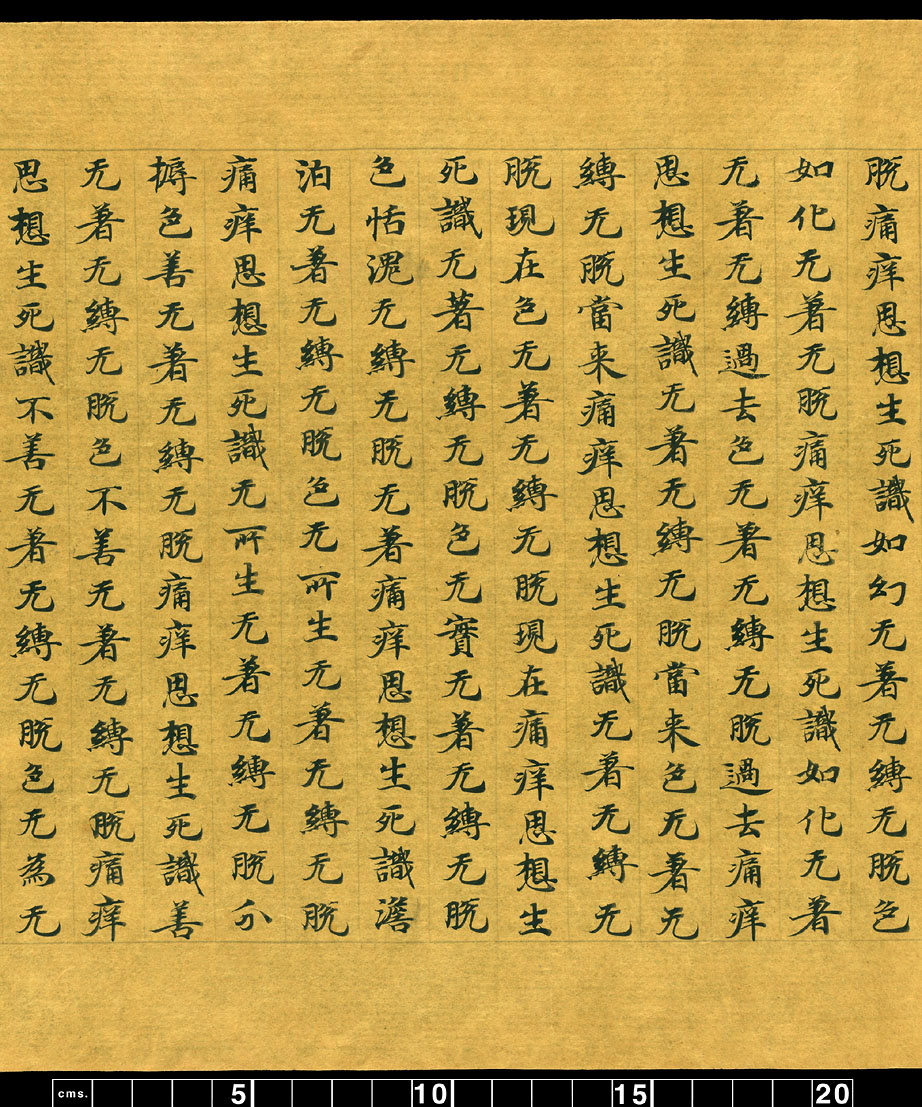 脫痛痒思想生死識如幻无著无縛无脫色
如化无著无脫痛痒思想生死識如化无著
无著无縛過去色无著无縛无脫過去痛痒
思想生死識无著无縛无脫當来色无著无
縛无脫當来痛痒思想生死識无著无縛无
脫現在色无著无縛无脫現在痛痒思想生
死識无著无縛无脫色无實无著无縛无脫
色恬无縛无脫无著痛痒思想生死識澹
泊无著无縛无脫色无所生无著无縛无脫
痛痒思想生死識无所生无著无縛无脫尒
搙色善无著无縛无脫痛痒思想生死識善
无著无縛无脫色不善无著无縛无脫痛痒
思想生死識不善无著无縛无脫色无為无
cms. 5 10 15 20